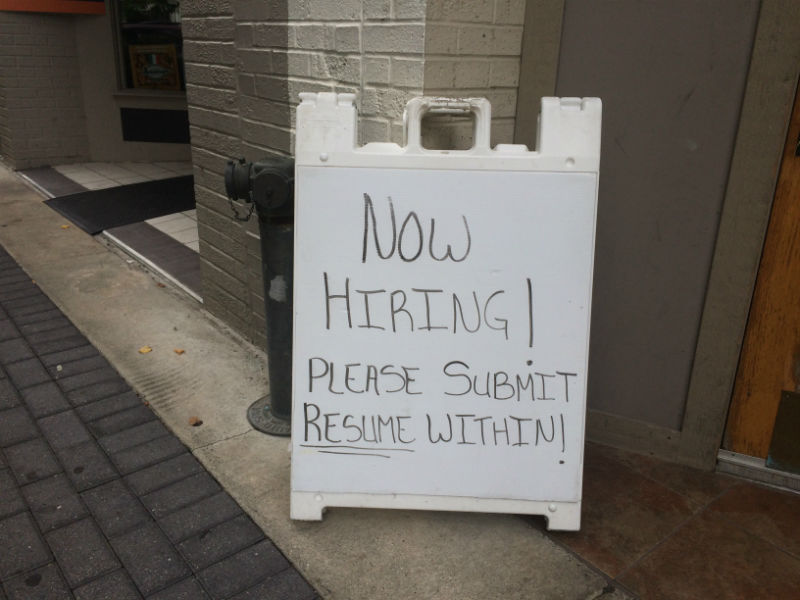 NOW
HIRING!
PLEASE SUBMIT
RESUME WITHIN!